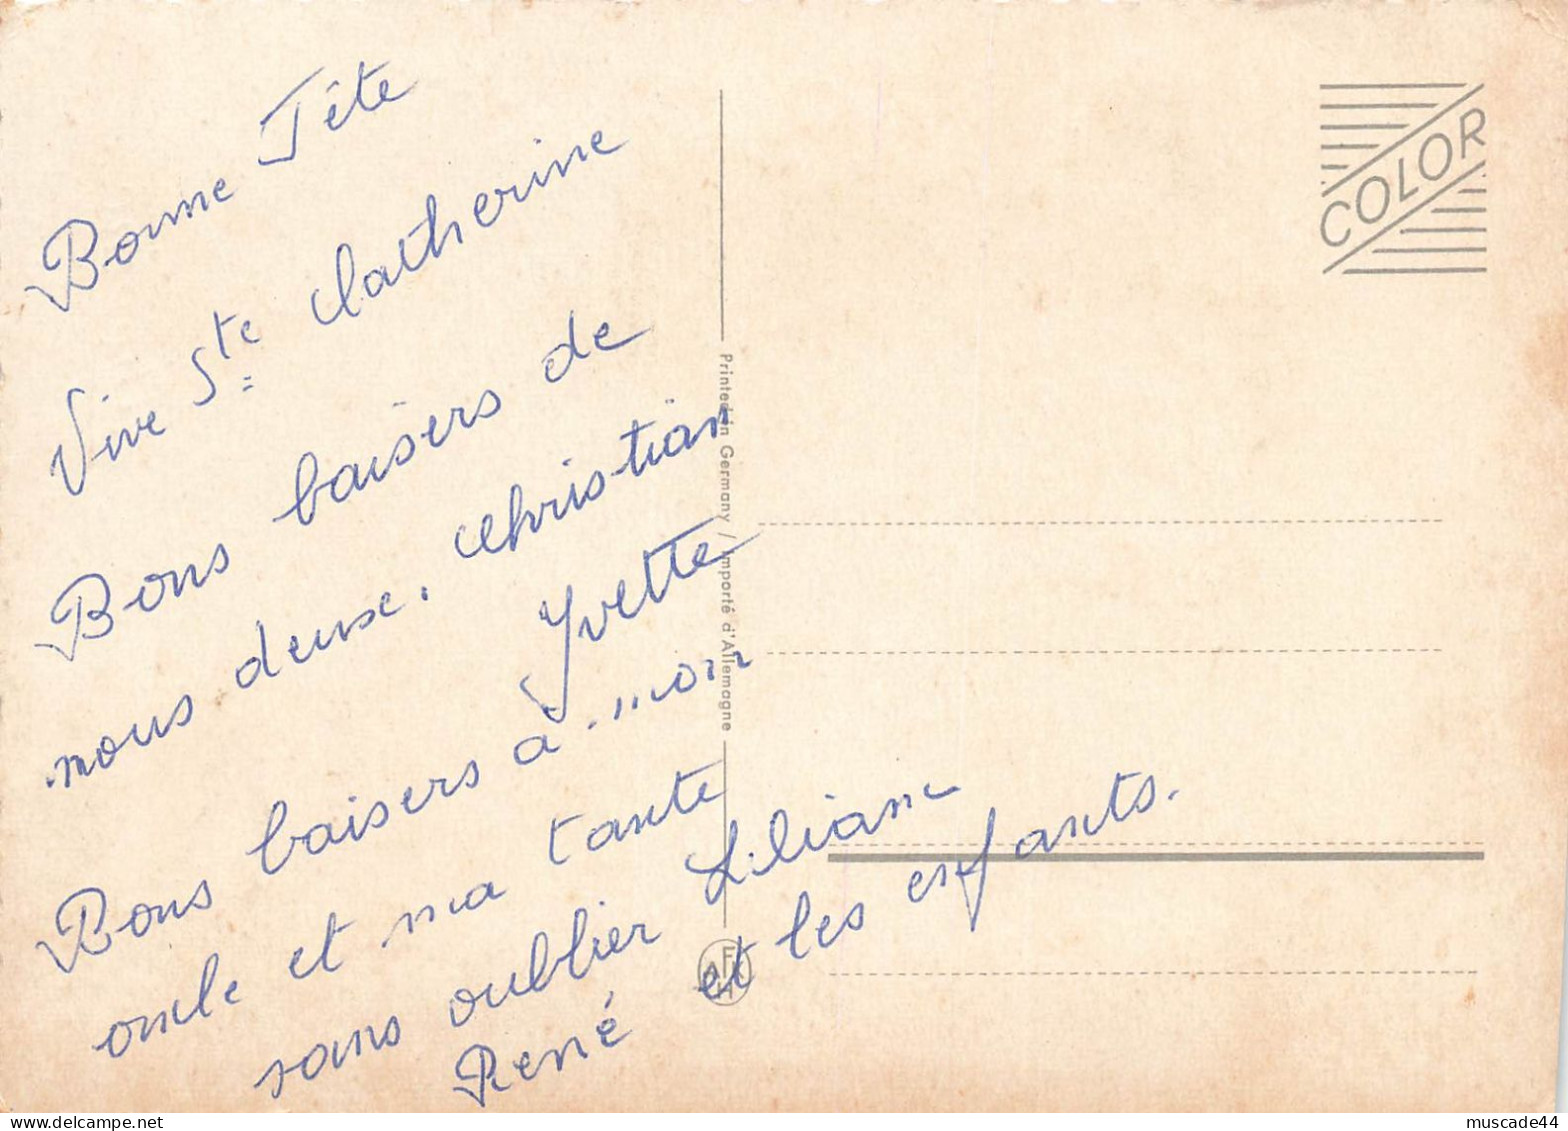 Bonne Fête
Vive Ste Catherine
Bons baisers de
nous deux. Christian
Yvette
Bons baisers à mon
oncle et ma tante
sans oublier Liliane
René et les enfants.
COLOR
Printed in Germany / Importé d'Allemagne
muscade44